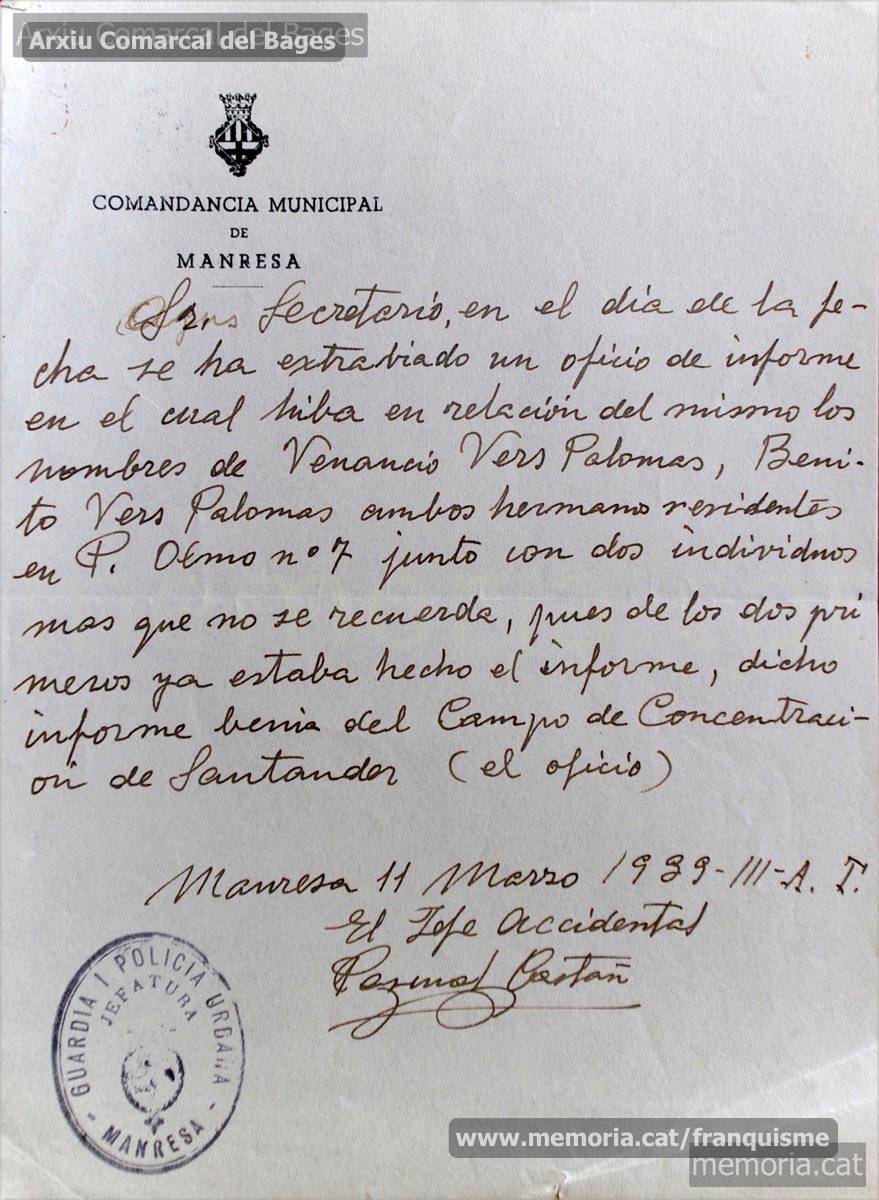 Arxiu Comarcal del Bages
Arxiu Comarcal del Bages
COMANDANCIA MUNICIPAL
DE
MANRESA
Sr. Secretario, en el dia de la fe-
cha se ha extrabiado un oficio de informe
en el cual hiba en relación del mismo los
nombres de Venancio Vers Palomas, Beni-
to Vers Palomas ambos hermano residentes
en P. Olmo nº 7 junto con dos individuos
mas que no se recuerda, pues de los dos pri
meros ya estaba hecho el informe, dicho
informe benia del Campo de Concentraci-
ón de Santander (el oficio)
Manresa 11 Marzo 1939-III-A. T.
El Jefe Accidental
Pascual Castañ
GUARDIA I POLICIA URBANA
JEFATURA
- MANRESA -
www.memoria.cat/franquisme
memoria.cat